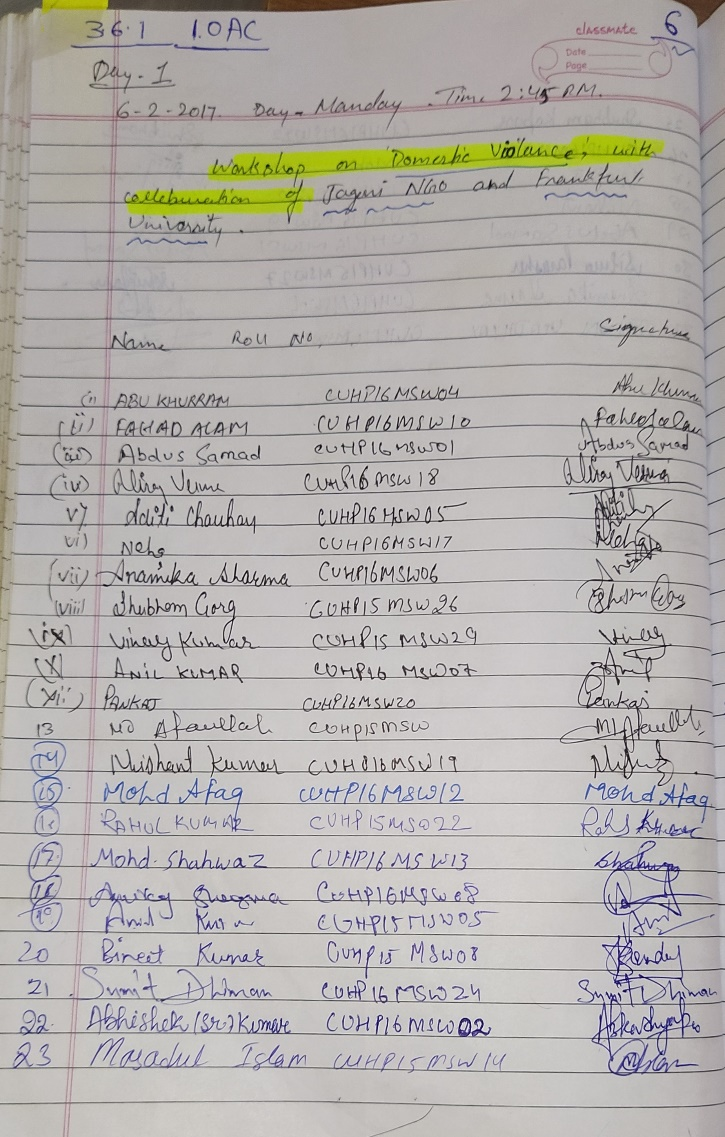 36.1 1.0AC
classmate 6
Date
Page
Day-1
6-2-2017. Day - Manday . Time 2:45 PM.
Workshop on 'Domestic Violance', with
colleburation of Jagori NGO and Frankfurt
University.
Name Roll No. Signature
(i) ABU KHURRAM CUHP16MSW04
(ii) FAHAD ALAM CUHP16MSW10
(iii) Abdus Samad CUHP16MSW01 Abdus Samad
(iv) CUHP16MSW18
v) Aditi Chauhan CUHP16MSW05 Aditi
vi) Neha CUHP16MSW17 Neha
(vii) Anamika Sharma CUHP16MSW06
(viii) Shubham Garg CUHP15MSW26
(ix) Vinay Kumar CUHP15 MSW29 Vinay
(X) ANIL KUMAR CUHP16 MSW07 Anil
(xii) PANKAJ CUHP16MSW20 Pankaj
13 MD Afaullah CUHP15MSW
14 Nishant Kumar CUHP16MSW19
15 Mohd Afaq CUHP16MSW12 Mohd Afaq
RAHUL KUMAR CUHP15MSW22
17. Mohd. Shahwaz CUHP16MSW13
18 Sharma CUHP16MSW08
19 CUHP15MSW05
20 Bineet Kumar CUHP15 MSW08
21 Sumit Dhiman CUHP16MSW24 Sumit Dhiman
22. Abhishek (Sr.) Kumar CUHP16MSW02
23 Masadul Islam CUHP15MSW14